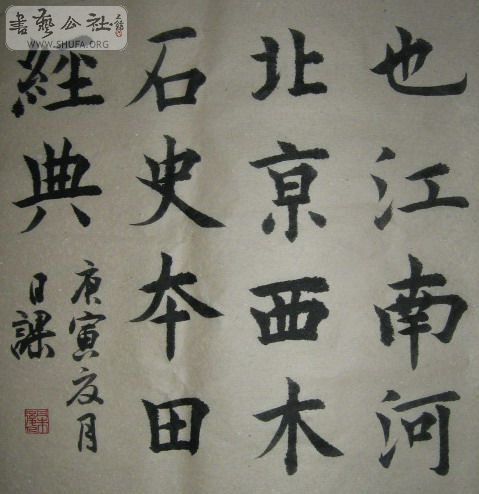 也江南河
北京西木
石史本田
經典
庚寅夏月
日課
書藝公社
WWW.SHUFA.ORG